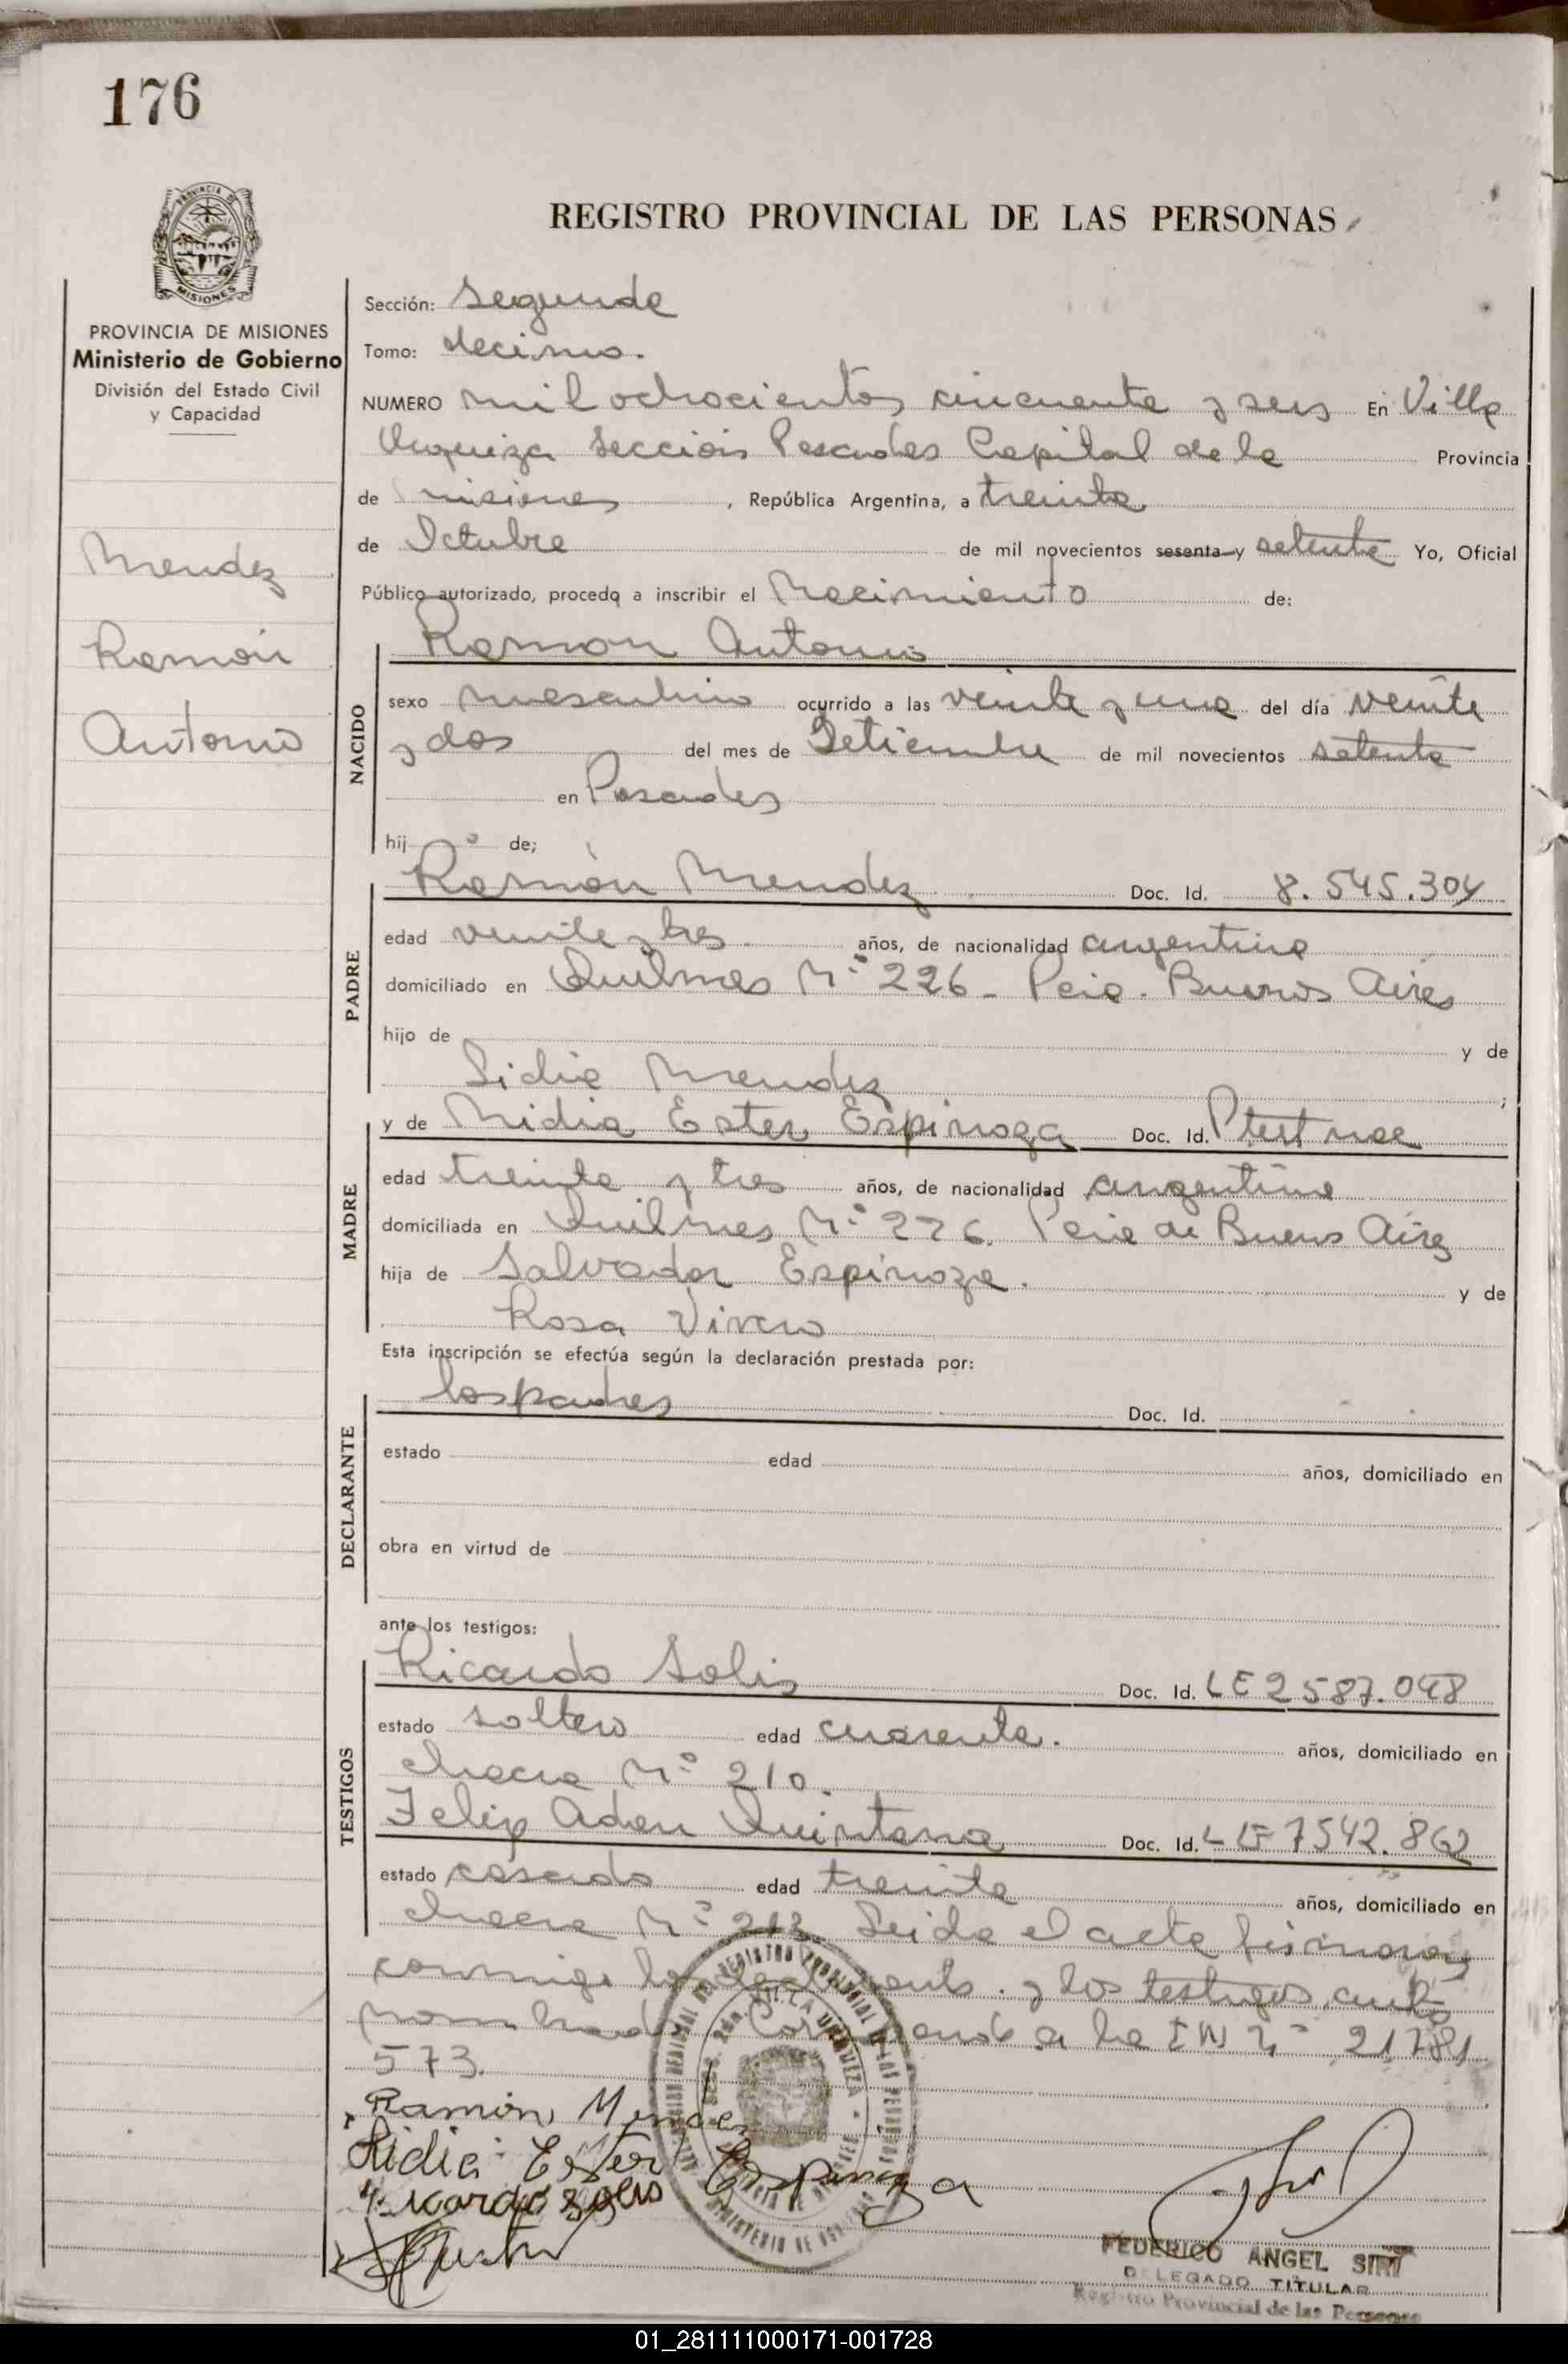 176
REGISTRO PROVINCIAL DE LAS PERSONAS
PROVINCIA DE MISIONES
Ministerio de Gobierno
División del Estado Civil
y Capacidad
Mendez
Ramón
Antonio
Sección: Segunda
Tomo: decimo.
NUMERO mil ochocientos cincuenta y seis En Villa
Urquiza Sección Posadas Capital de la Provincia
de Misiones, República Argentina, a treinta
de Octubre de mil novecientos sesenta y setenta Yo, Oficial
Público autorizado, procedo a inscribir el Nacimiento de:
NACIDO
Ramon Antonio
sexo masculino ocurrido a las veinte y una del día veinte
y dos del mes de Setiembre de mil novecientos setenta
en Posadas
hij o de;
PADRE
Ramón Mendez Doc. Id. 8.545.304
edad veinte y tres años, de nacionalidad argentina
domiciliado en Quilmes N° 226 - Pcia. Buenos Aires
hijo de y de
Lidia Mendez ;
MADRE
y de Nidia Ester Espinoza Doc. Id.
edad treinta y tres años, de nacionalidad argentina
domiciliada en Quilmes N° 226. Pcia de Buenos Aires
hija de Salvador Espinoza. y de
Rosa Vivero
Esta inscripción se efectúa según la declaración prestada por:
DECLARANTE
los padres Doc. Id.
estado edad años, domiciliado en
obra en virtud de
ante los testigos:
TESTIGOS
Ricardo Solis Doc. Id. LE 2587.048
estado soltero edad cuarenta. años, domiciliado en
chacra N° 210.
Felix Aden Quintana Doc. Id. LE 7542.862
estado casado edad treinta años, domiciliado en
chacra N° 213 Leida el acta firman
conmigo y los testigos
a la N° 21781
573.
Ramón Mendez
Lidia Ester Espinoza
Ricardo Solis
FEDERICO ANGEL SIRI
DELEGADO TITULAR
Registro Provincial de las Personas
01_281111000171-001728